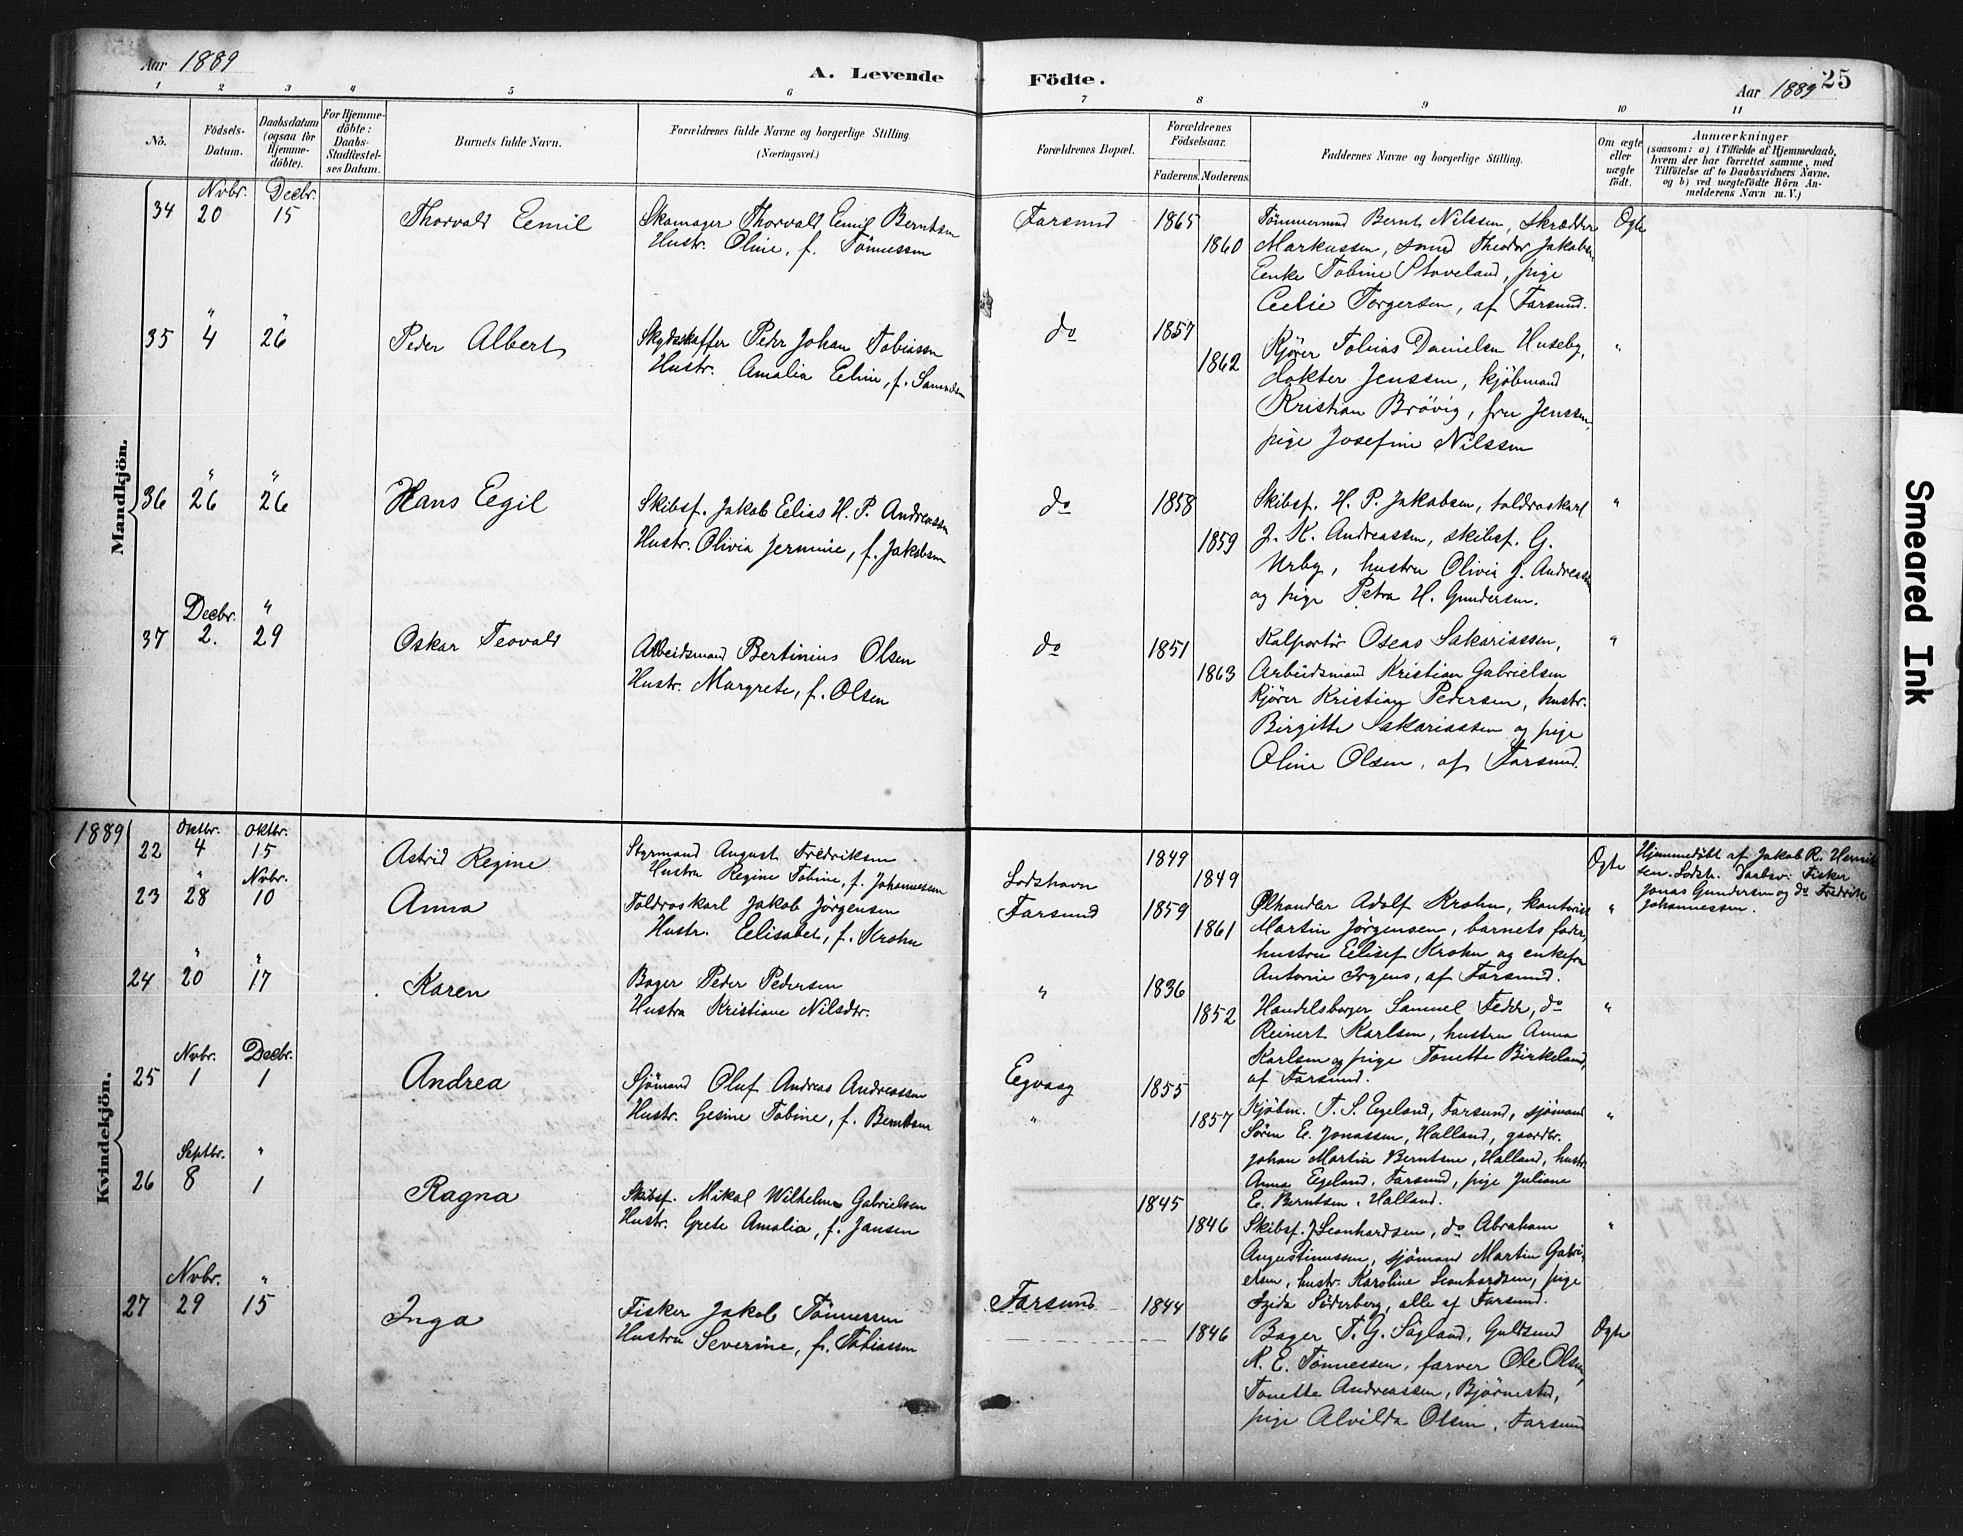 Aar 1889
A. Levende
Födte.
Aar 1889
25
1 2 3 4 5 6 7 8 9 10 11
No.
Födsels-
Datum.
Daabsdatum
(ogsaa for
Hjemme-
döbte).
For Hjemme-
döbte:
Daabs-
Stadfæstel-
ses Datum.
Barnets fulde Navn.
Forældrenes fulde Navne og borgerlige Stilling.
(Næringsvei.)
Forældrenes Bopæl.
Forældrenes
Födselsaar.
Faderens. Moderens.
Faddernes Navne og borgerlige Stilling.
Om ægte
eller
uægte
födt.
Anmærkninger
(saasom: a) i Tilfælde af Hjemmedaab,
hvem der har forrettet samme, med
Tilföielse af to Daabsvidners Navne.
og b) ved uægtefödte Börn An-
melderens Navn m. V.)
Mandkjön.
Novbr. Decbr.
34 20 15 Thorvald Emil
Skomager Thorvald Emil Berntsen
Hustr. Oline, f. Tönnessen
Farsund 1865 1860
Tømmermand Bernt Nilssen, Skrædder
Markussen, Theodor Jakobsen
Enke Tobine Staveland, pige
Celie Torgersen, af Farsund.
Ægte
" "
35 4 26 Peder Albert
Skydsskaffer Peder Johan Tobiassen
Hustr. Amalia Eline, f. Samuelsen
do 1857 1862
Kjører Tobias Danielsen Huseby,
dokter Jenssen, kjøbmand
Kristian Brøvig, fru Jenssen,
pige Josefine Nilssen
"
" "
36 26 26 Hans Egil
Skibsf. Jakob Elias H. P. Andreassen
Hustr. Olivia Jermine, f. Jakobsen
do 1858 1859
Skibsf. H. P. Jakobsen, toldroskarl
J. K. Andreassen, skibsf. G.
Urby, hustru Olivia J. Andreassen
og pige Petra H. Gundersen.
"
Decbr. "
37 2. 29 Oskar Teovald
Arbeidsmand Bertinius Olsen
Hustr. Margrete, f. Olsen
do 1851 1863
Kolportør Oseas Sakariassen,
Arbeidsmand Kristian Gabrielsen
Kjører Kristian Pedersen, hustr.
Birgitte Sakariassen og pige
Oline Olsen, af Farsund.
"
1889
Kvindekjön.
Oktbr. Oktbr.
22 4 15 Astrid Regine
Styrmand August Fredriksen
Hustru Regine Tobine, f. Johannessen
Lodshavn 1849 1849
Ægte
Hjemmedøbt af Jakob R. Henrik
sen. Lodsh. Daabsv: Fisker
Jonas Gundersen og do Fredrik
Johannessen.
" Novbr.
23 28 10 Anna
Toldroskarl Jakob Jørgensen
Hustr. Elisabet, f. Krohn
Farsund 1859 1861
Ølhandler Adolf Krohn, kontorist
Martin Jørgensen, barnets fader,
hustru Elisef Krohn og enkefru
Antonie Irgens, af Farsund.
"
" "
24 20 17 Karen
Bager Peder Pedersen
Hustru Kristiane Nilsdtr.
" 1836 1852
Handelsborger Samuel Fedde, do
Reinert Karlsen, hustru Anna
Karlsen og pige Tonette Birkeland,
af Farsund.
"
Novbr. Decbr.
25 1 1 Andrea
Sjømand Oluf Andreas Andreassen
Hustr. Gesine Tobine, f. Berntsen
Egvaag 1855 1857
"
Kjøbm. T. S. Egeland, Farsund, sjømand
Søren E. Jonassen, Halland, gaardbr.
Johan Martin Berntsen, Halland, hustr.
Anna Egeland, Farsund, pige Juliane
E. Berntsen, Halland.
"
Septbr. "
26 8 1 Ragna
Skibsf. Mikal Wilhelm Gabrielsen
Hustr. Grete Amalia, f. Jansen
1845 1846
Skibsf. J. Leonhardsen, do Abraham
Augustinussen, sjømand Martin Gabri-
elsen, hustr. Karoline Leonhardsen, pige
Söderberg, alle af Farsund.
"
Novbr. "
27 29 15 Inga
Fisker Jakob Tönnessen
Hustru Severine, f. Tobiassen
Farsund 1844 1846
Bager T. G. Sägland, Guldsmed
N. E. Tønnessen, farver Ole Olsen,
Tonette Andreassen, Bjørnestad,
pige Alvilda Olsen, Farsund
Ægte
Smeared Ink